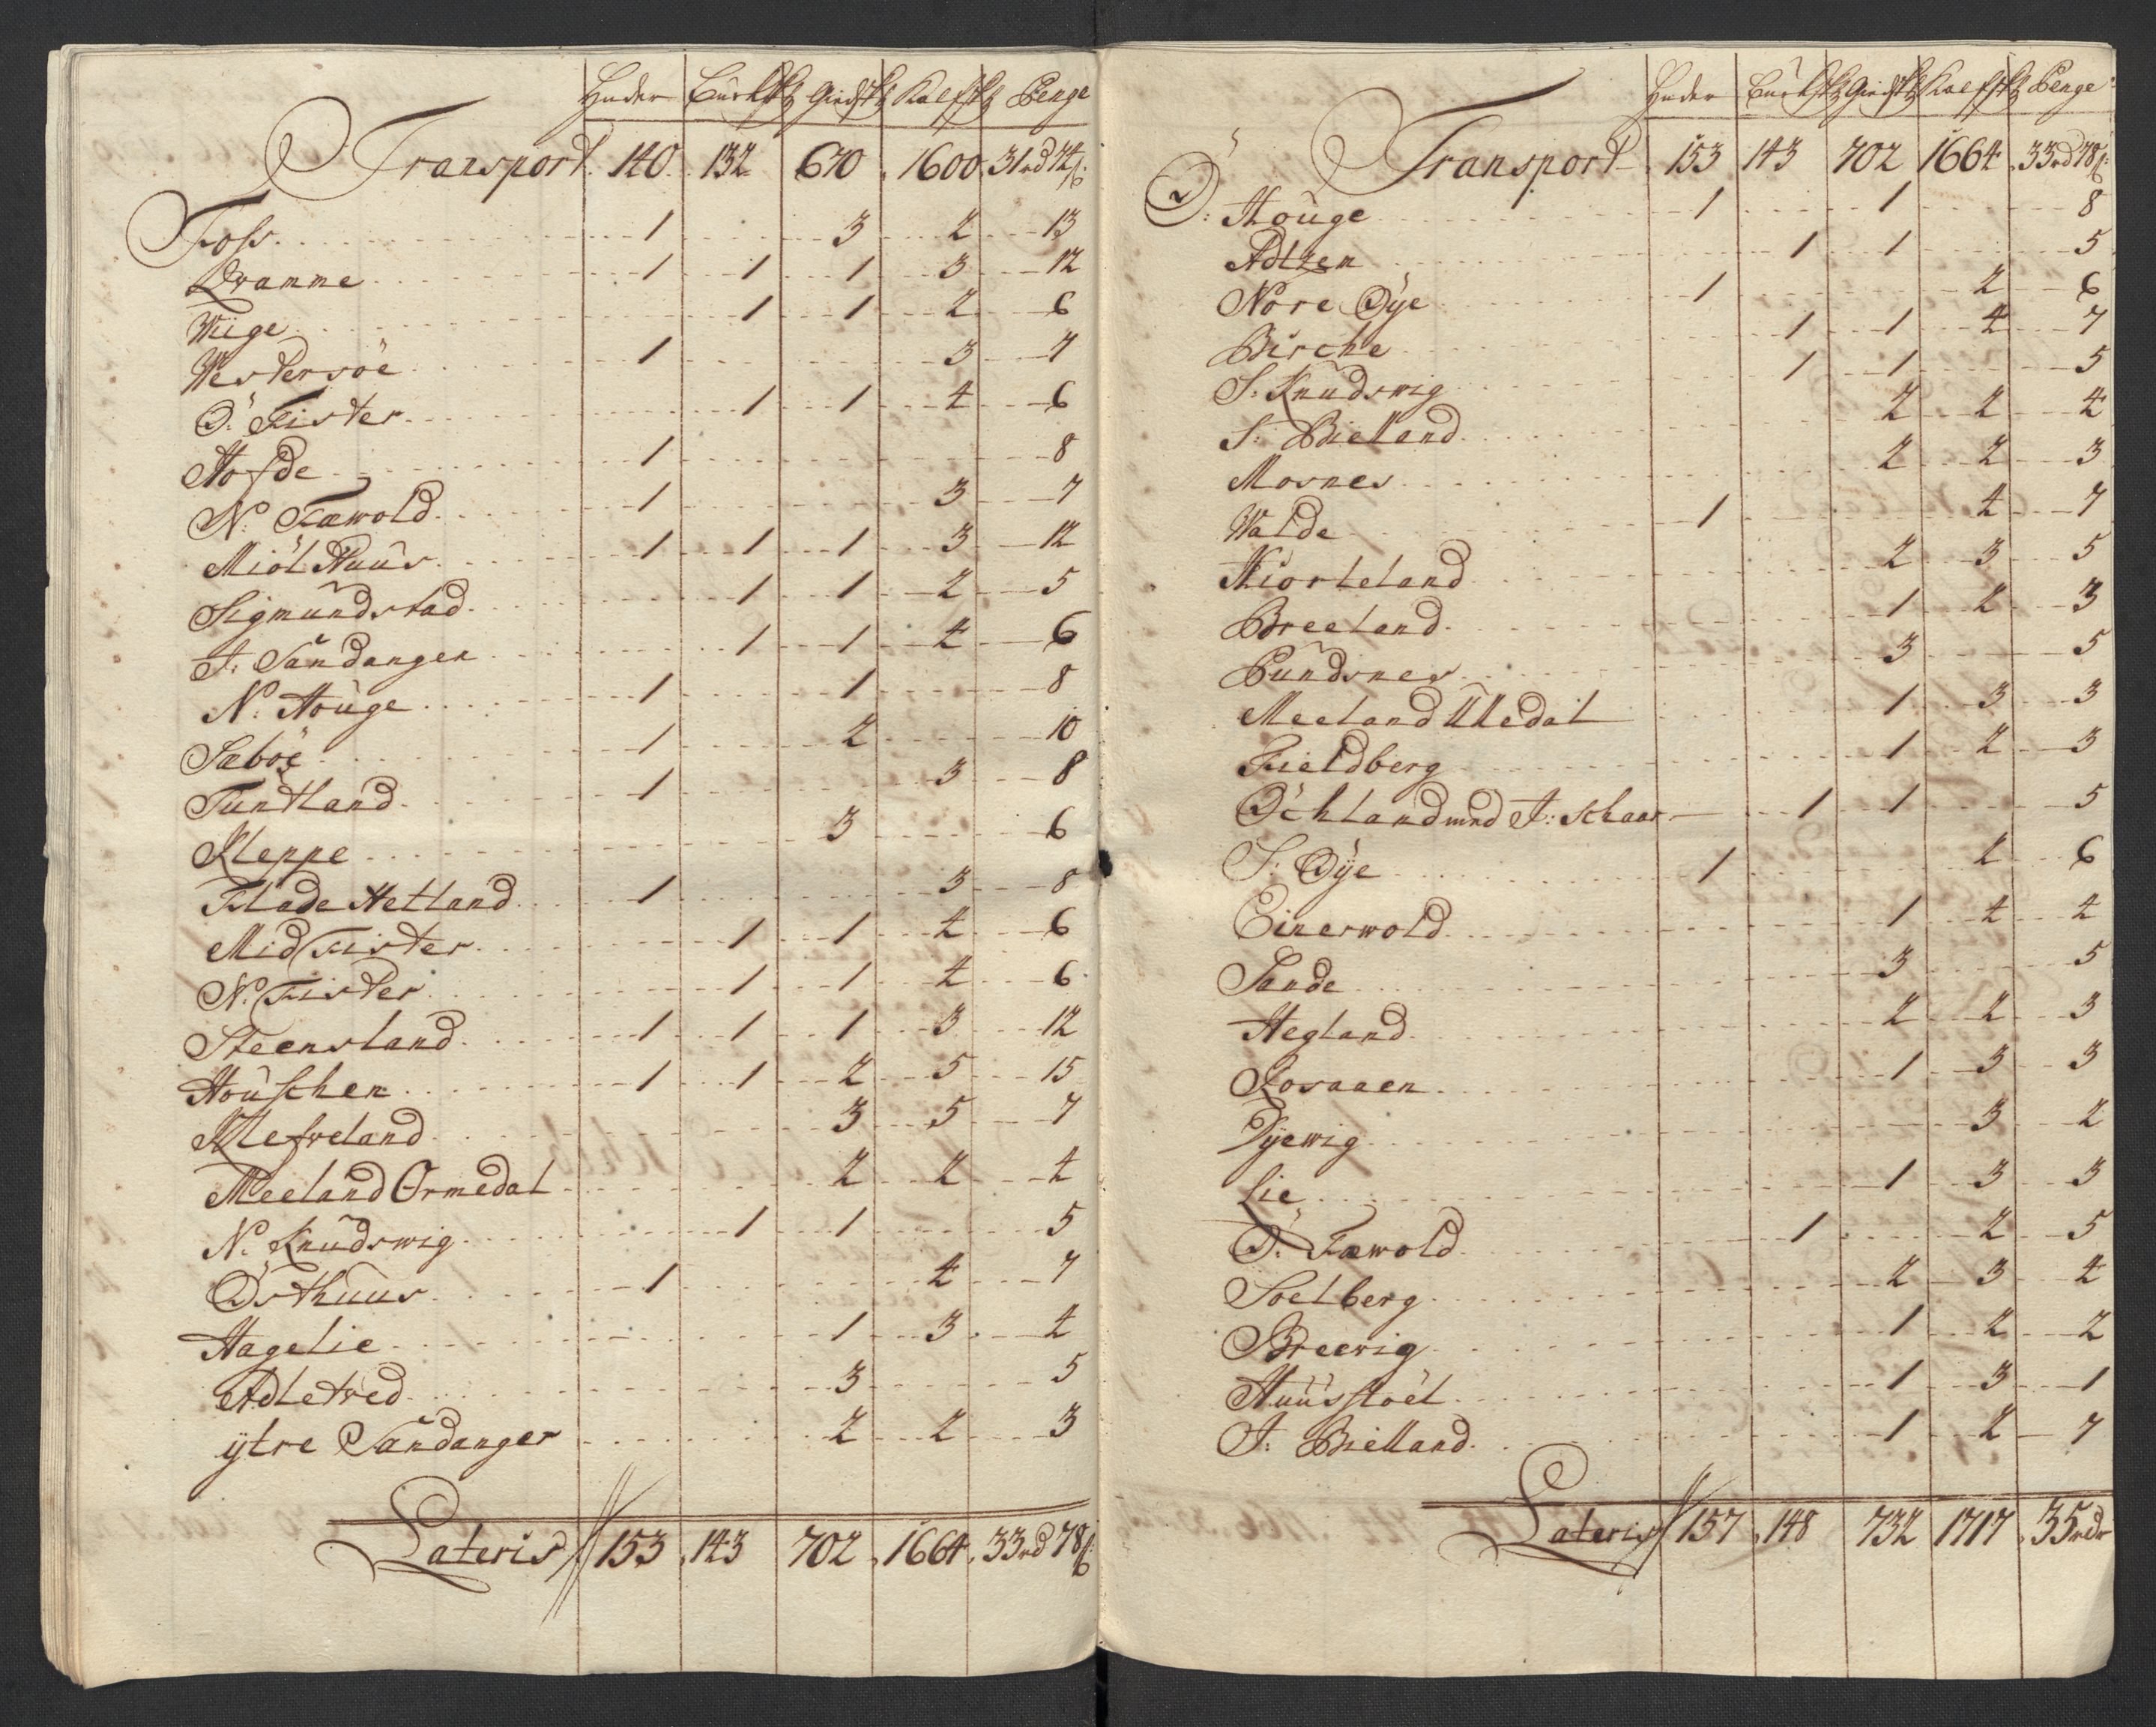 Huder Bucksk Giedsk Kalfsk Penge
Transport 140 132 670 1600 31rd 74ß
Foss 1 3 2 13
Dramme 1 1 1 3 12
Wiige 1 1 2 6
Westersöe 1 3 7
Ö: Fister 1 1 4 6
Hofde 1 8
N: Fæwold 1 3 7
Miöl Huus 1 1 1 3 12
Sigmundstad 1 1 2 5
J: Sandanger 1 1 4 6
N: Houge 1 1 8
Sæböe 1 2 10
Tuntland 1 3 8
Kleppe 3 6
Flade Hetland 1 3 8
Mid Fister 1 1 4 6
N: Fister 1 1 4 6
Steensland 1 1 1 3 12
Houschen 1 1 2 5 15
Klefweland 3 5 7
Meeland Ormedal 2 2 4
N: Knudswig 1 1 5
Östhuus 1 4 7
Hagelie 1 3 4
Adletved 3 5
ÿtre Sandanger 2 2 3
Lateris 153 143 702 1664 33rd 78ß
Huder Bucksk Giedsk Kalfsk Penge
Transport 153 143 702 1664 33rd 78ß
Ö: Houge 1 1 8
Adtzen 1 1 5
Nore Öÿe 1 2 6
Birche 1 1 4 7
S: Knudswig 1 1 5
S: Bielland 2 2 4
Mosnes 2 2 3
Walde 1 4 7
Hiorteland 2 3 5
Breeland 1 2 3
Pundsnes 3 5
Meeland Uledal 1 3 3
Fieldberg 1 2 3
Öchland med J: Schaar 1 1 5
S: Öÿe 1 2 6
Einerwold 1 4 4
Sande 3 5
Hegland 2 2 3
Rosaaen 1 3 3
Dÿewig 3 2
Lie 1 3 3
Ö: Fæwold 1 2 5
Soelberg 2 3 4
Breewig 1 2 2
Huusstöel 1 3 1
J: Bielland 1 2 7
Lateris 157 148 732 1717 35rdr